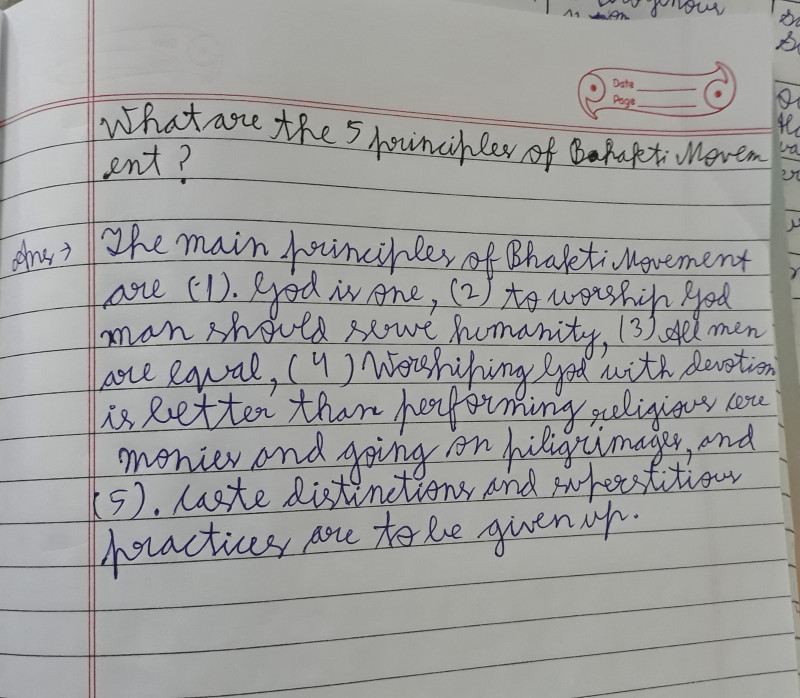 Date
Page
What are the 5 principles of Bahakti Movem
ent?
Ans→ The main principles of Bhakti Movement
are (1). God is one, (2) to worship God
man should serve humanity, (3) All men
are equal, (4) Worshiping God with devotion
is better than performing religious cere
monies and going on piligrimages, and
(5). Caste distinctions and superstitious
practices are to be given up.